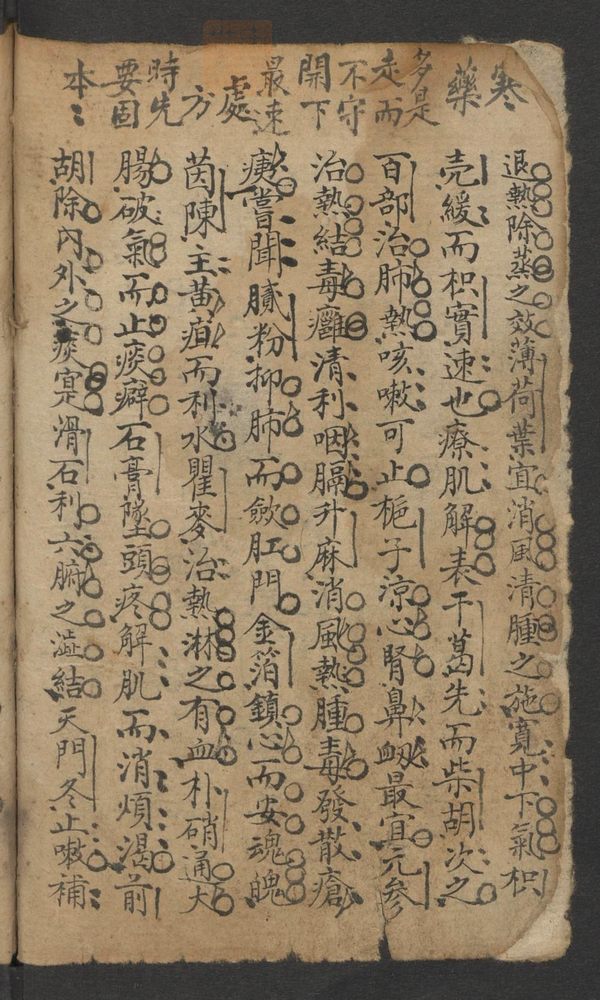 寒
藥
多是
走而
不守
開下
最速
處
方
時先
要固
本〻
退熱除蒸之效薄荷葉宜消風清腫之施寬中下氣枳
壳緩而枳實速也療肌解表干葛先而柴胡次之
百部治肺熱咳嗽可止梔子凉心腎鼻衂最宜元參
治熱結毒癰清利咽膈升麻消風熱腫毒發散瘡
痍嘗聞膩粉抑肺而斂肛門金箔鎮心而安魂魄
茵陳主黄疸而利水瞿麥治熱淋之有血朴硝通大
腸破氣而止痰癖石膏墜頭疼解肌而消煩渴前
胡除内外之痰寔滑石利六腑之澁結天門冬止嗽補